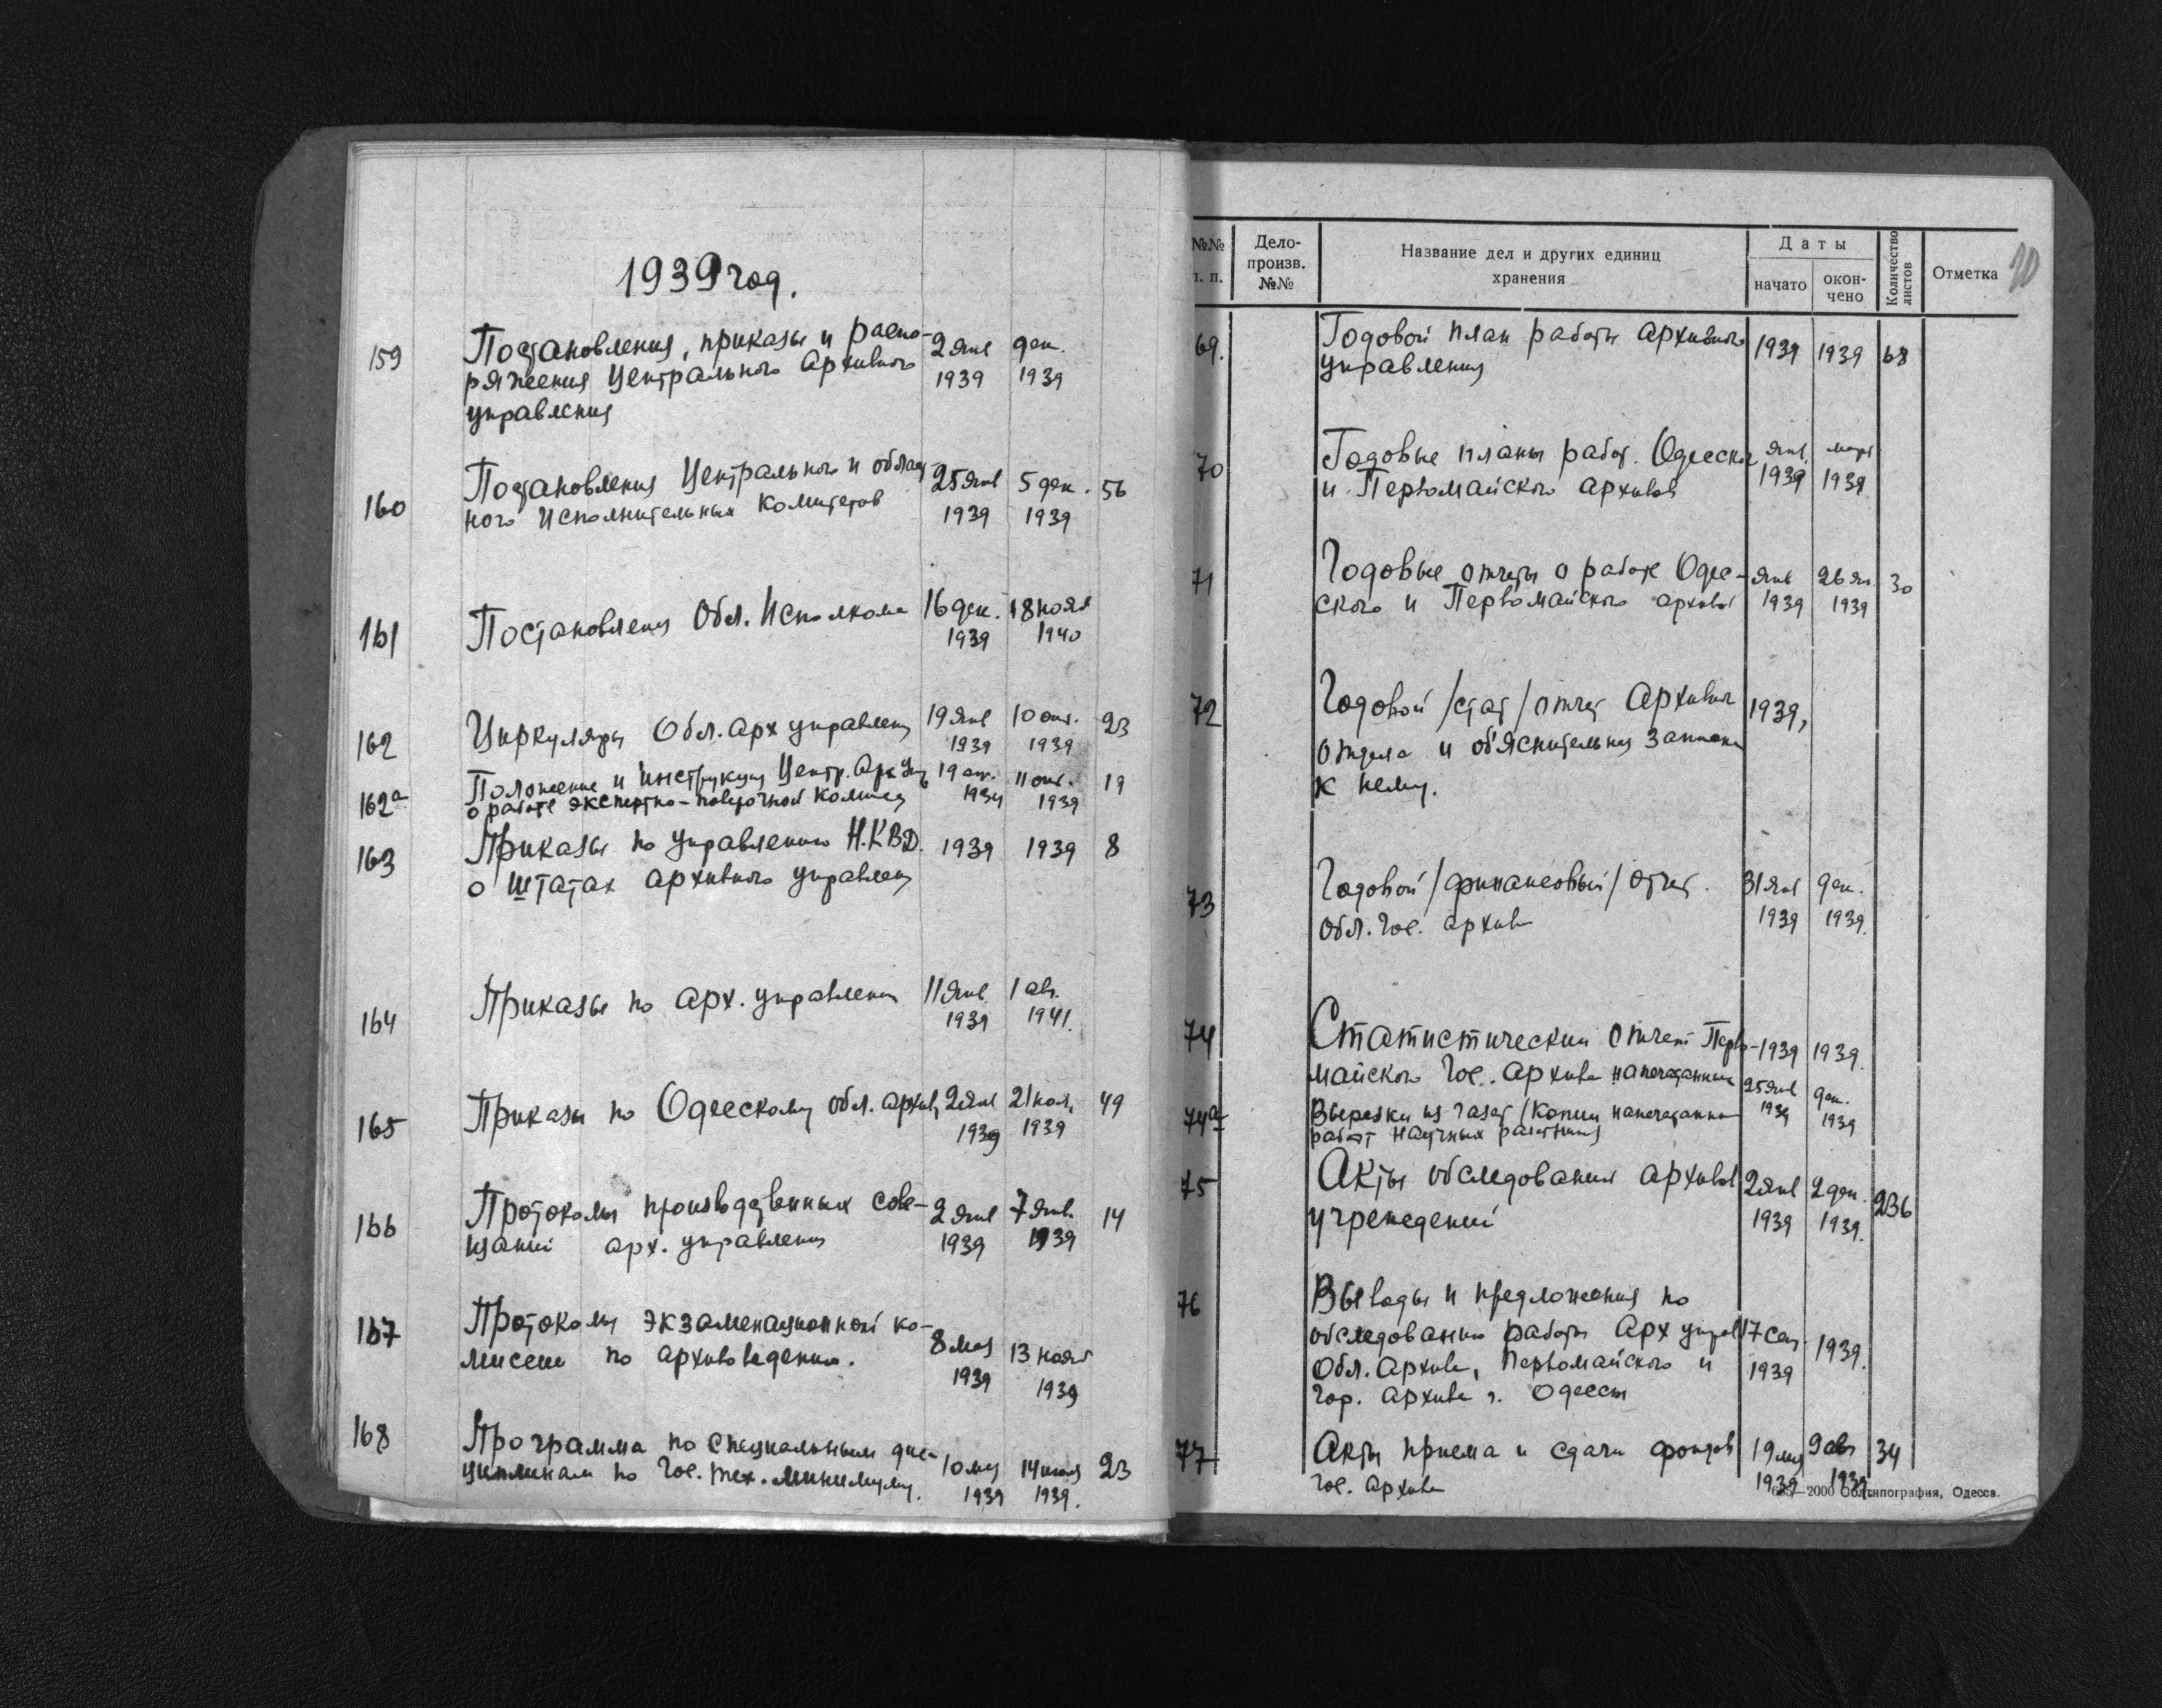 1939 год.
159 Постановления, приказы и распо- 2 янв дек.
ряжения Центрального Архивного 1939 1939
управления
160 Постановления Центрального и област- 25 янв 5 дек. 56
ного Исполнительных Комитетов 1939 1939
161 Постановления Обл. Исполкома 16 дек. 18 нояб
1939 1940
162 Циркуляры Обл. Арх управлен 19 янв 10 окт. 23
1939 1939
162а Положение и инструкция Центр. Арх Упр 11 окт. 19
о работе экспертно-поверочной комисс 1934 1939
163 Приказы по управлению Н.КВД. 1939 1939 8
о штатах архивного управлен
164 Приказы по арх. управлен 11 янв. 1 ав.
1939 1941.
165 Приказы по Одесскому обл. архив 2 янв 21 нояб 49
1939 1939
166 Протоколы производственных сове- 2 янв 7 янв. 14
щаний арх. управления 1939 1939
167 Протоколы экзаменационной ко-
миссии по архивоведению. 8 мая 13 нояб
1939 1939
168 Программа по специальным дис-
циплинам по Гос. тех. минимуму. 10 мая 14 июля 23
1939 1939.
№№ п. п.
Дело-произв. №№
Название дел и других единиц
хранения
Даты
начато
окон-чено
Количество листов
Отметка
69. Годовой план работы Архивного 1939 1939 68
управления
70 Годовые планы работ. Одесског янв. март
и Первомайского архивов 1939 1939
71 Годовые отчеты о работе Одес- янв 26 ян. 30
ского и Первомайского архивов 1939 1939
72 Годовой /стат/ отчет Архивног 1939,
отдела и объяснительная записка
к нему.
73 Годовой /финансовый/ отчет. 31 янв дек.
Обл. Гос. архива 1939 1939.
74 Статистический отчет Перво- 1939 1939.
майского Гос. Архива напечатанных
25 янв дек.
74а Вырезки из газет /копии напечатанных 1939 1939
работ научных работников
75 Акты обследования архивов 2 янв 2 дек. 236
учреждений 1939 1939.
76 Выводы и предложения по
обследованию работы Арх управ 17 сен 1939.
Обл. Архива, Первомайского и 1939
Гор. архива г. Одессы
77 Акты приема и сдачи фондов 19 мая 9 авг 34
Гос. Архива 1939 1939
2000 Облтипография, Одесса.